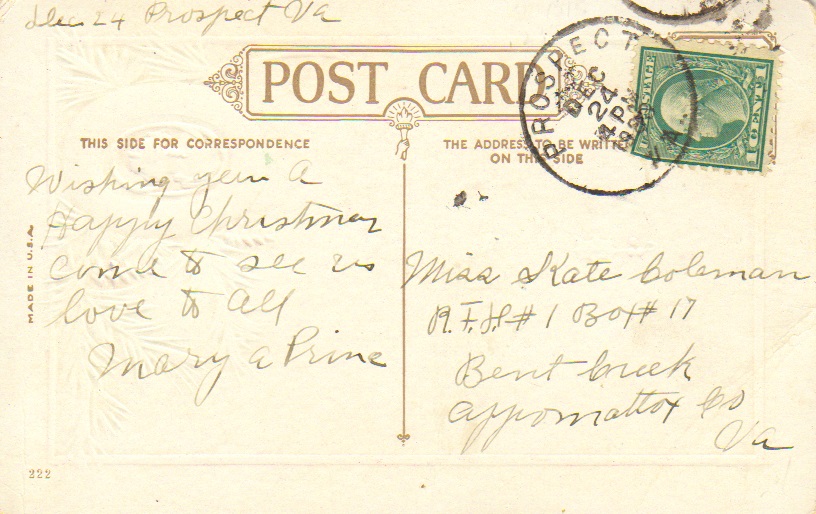 Dec 24 Prospect Va
POST CARD
THIS SIDE FOR CORRESPONDENCE
THE ADDRESS TO BE WRITTEN
ON THIS SIDE
PROSPECT
DEC
24
4 PM
VA.
Wishing you a
Happy Christmas
come to see us
love to all
Mary a Prine
Miss Kate Coleman
R.F.D.# 1 Box # 17
Bent Creek
Appomattox Co
Va
MADE IN U.S.A.
222